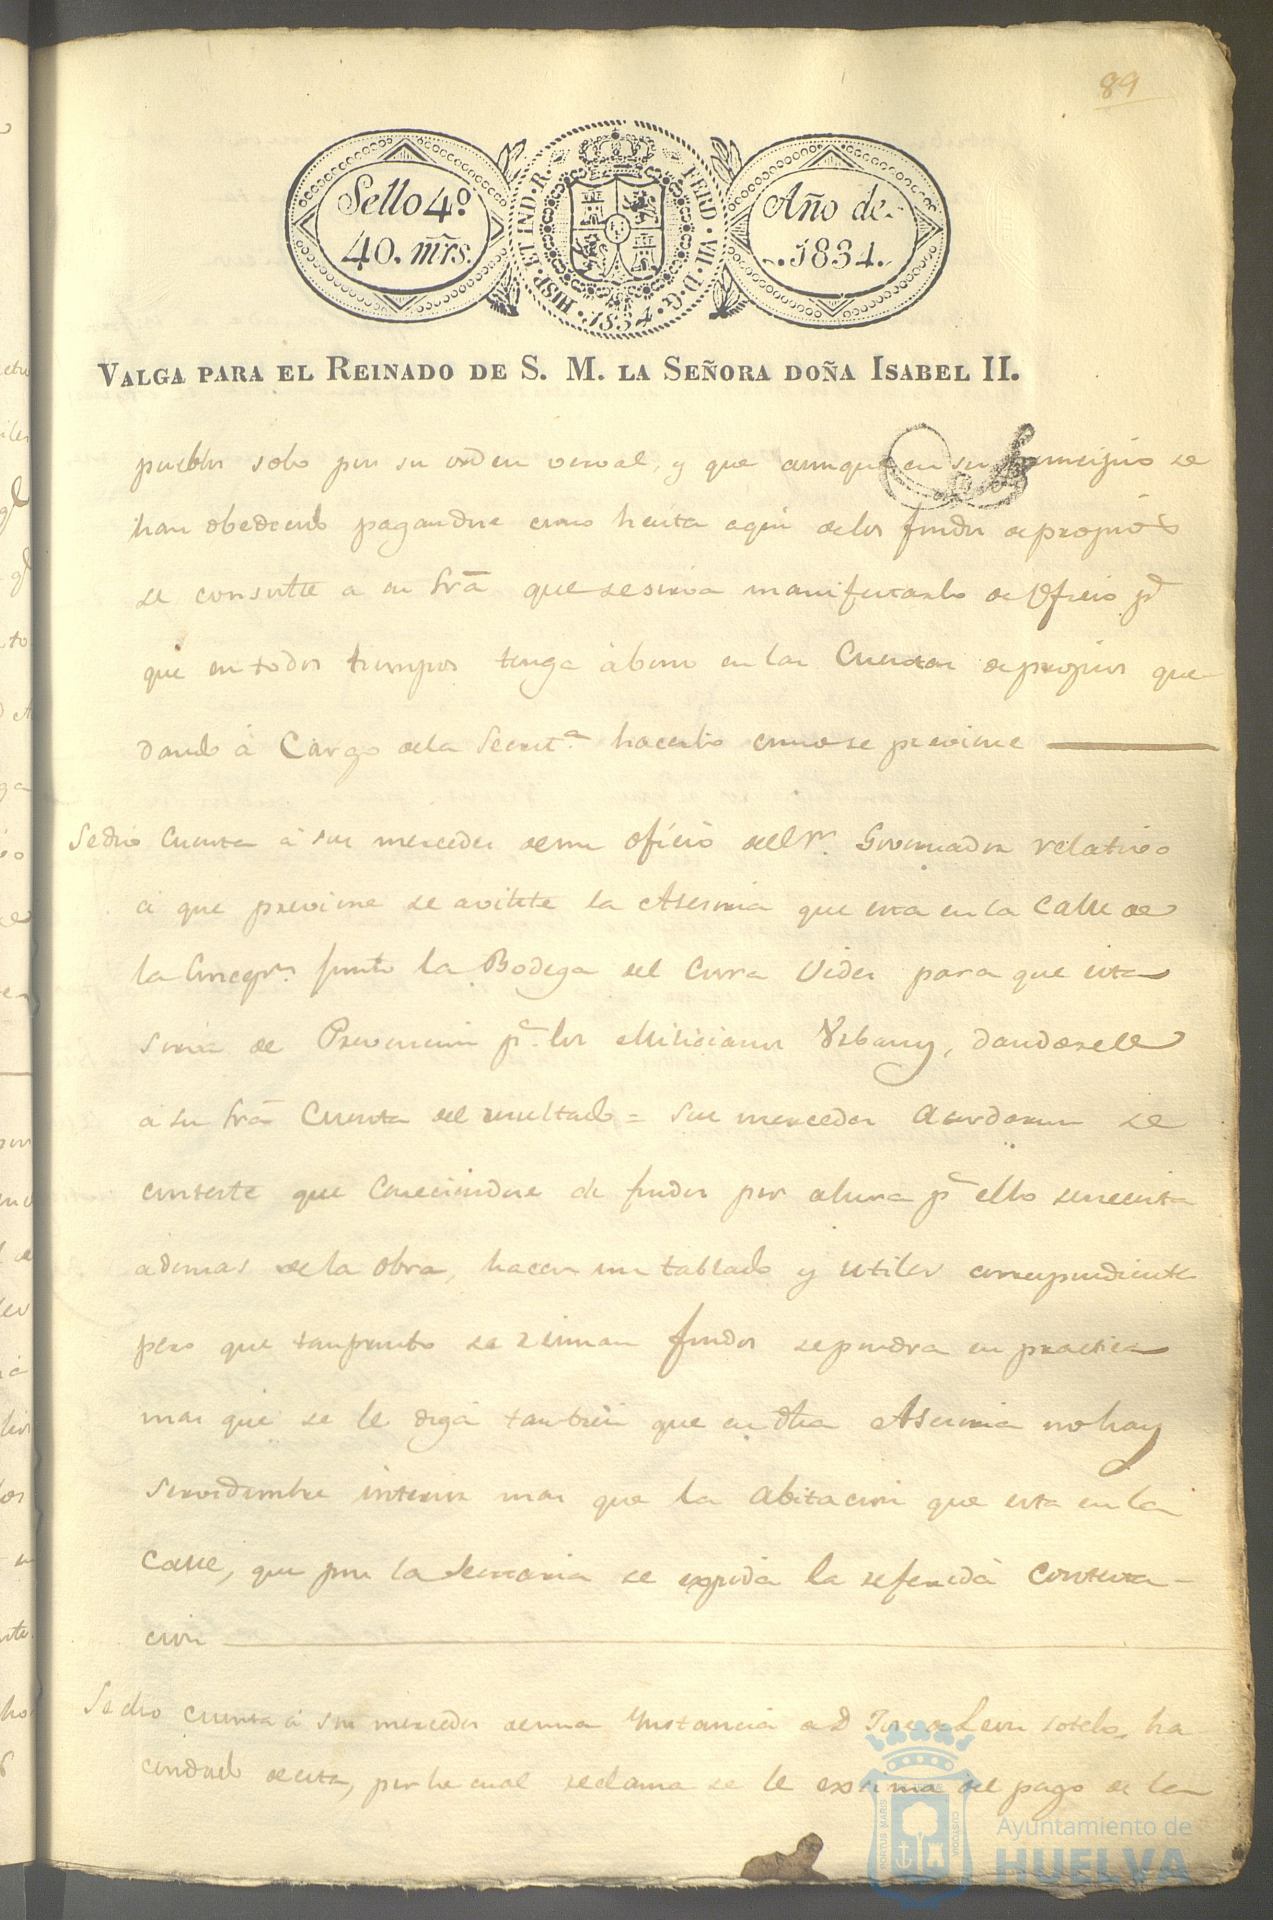 89
Sello 4º
40. mrs.
HISP. ET IND. R.
FERD. VII. D. G.
1834
Año de
1834.
VALGA PARA EL REINADO DE S. M. LA SEÑORA DOÑA ISABEL II.
pueblos solo por su orden verval, y que aunque en su principio se
han obedecido pagandose como hasta aqui de los fondos de propios
se consulte a su Srã que se sirva manifestarlo de Oficio pª
que en todos tiempos tenga abono en las Cuentas de propios que
dando á Cargo dela Secretª hacerlo como se previene
Se dio Cuenta á sus mercedes de un oficio del Sr. Governador relativo
á que previene se avilite la Asesoria que esta en la Calle de
la Concepn. junto la Bodega del Cura Vides para que esta
sirva de Prevencion pª los Milicianos Urbanos, dandosele
a su Srã Cuenta del resultado = sus mercedes acordaron se
conteste que Careciendose de fondos por ahora pª ello se necesita
ademas de la obra, hacer un tablado y utiles correspondientes
pero que tan pronto se reunan fondos se pondra en practica
mas que se le diga tambien que en dha Asesoria no hay
servidumbre interior mas que la abitacion que esta en la
Calle, que por la Secretaria se expida la referida Contesta-
cion
Se dio cuenta á sus mercedes de una Ynstancia de D Jose de Leon Sotelo, ha
cendado de esta, por la cual reclama se le exsima del pago de las
PORTUS MARIS
CUSTODIA
Ayuntamiento de
HUELVA